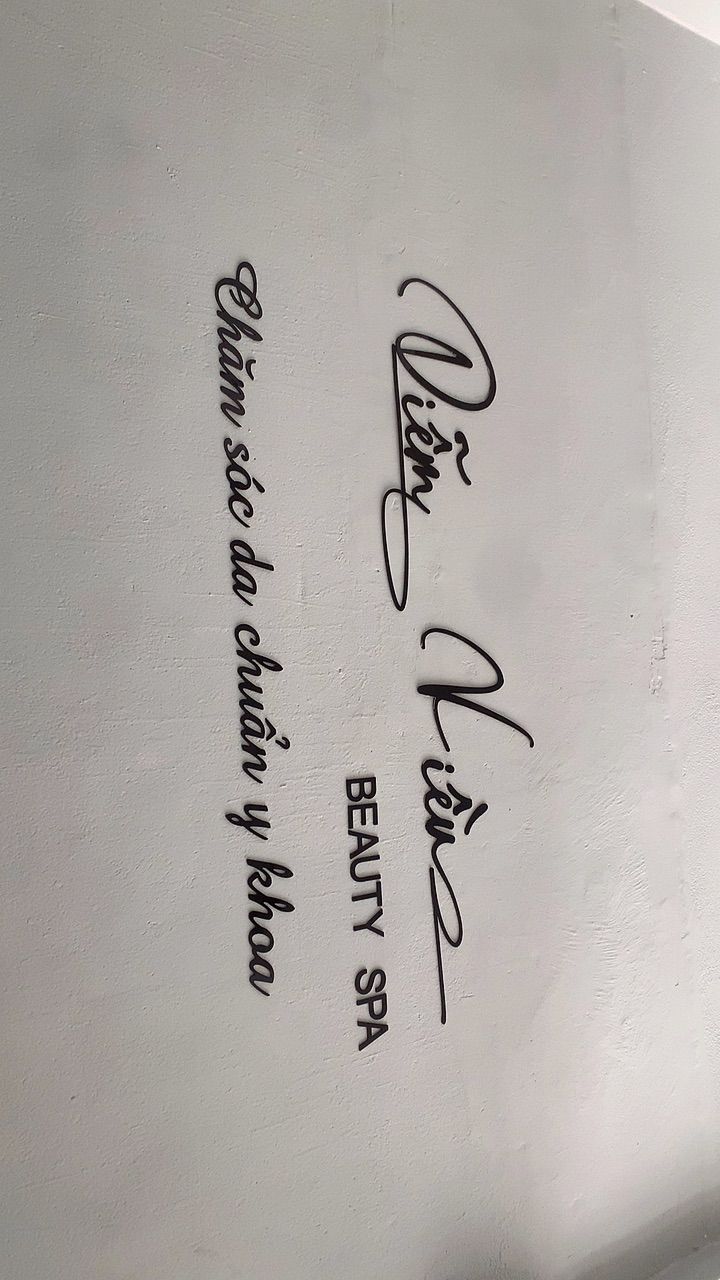 Viễm Kiều
BEAUTY SPA
Chăm sóc da chuẩn y khoa